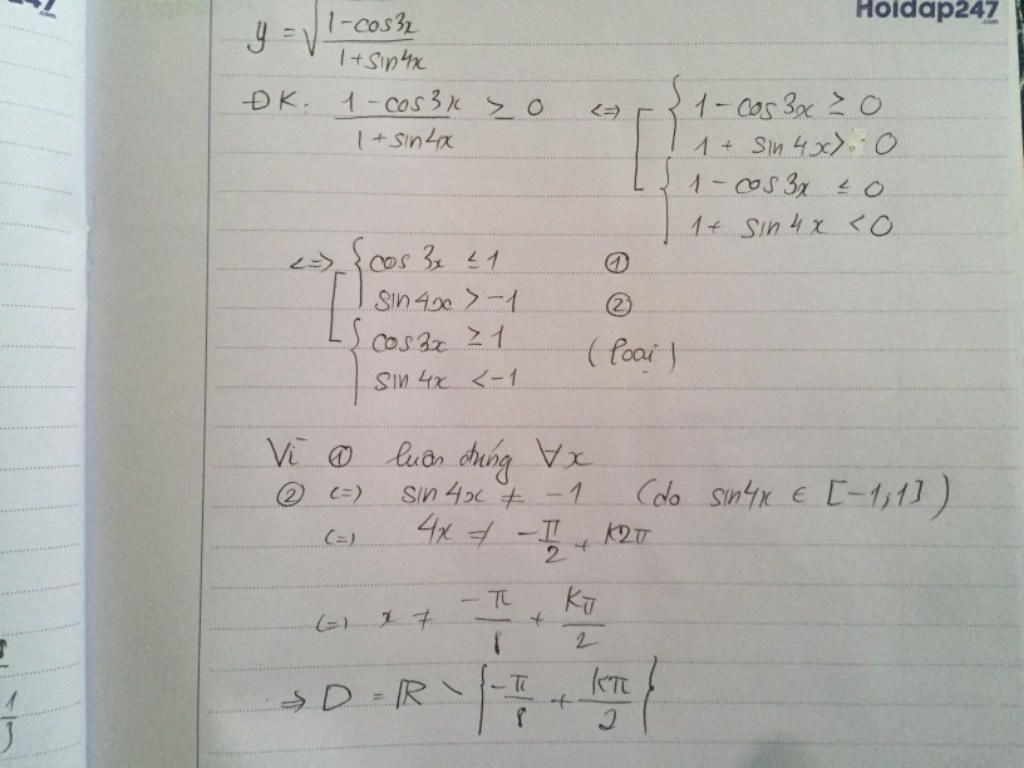 247
.com
Hoidap247
.com
y = √((1-cos3x)/(1+sin4x))
ĐK: (1-cos3x)/(1+sin4x) ≥ 0 <=> [ { 1-cos3x ≥ 0
1 + sin 4x > 0
{ 1-cos3x ≤ 0
1+ sin 4x < 0
<=> [ { cos 3x ≤ 1 ①
sin4x > -1 ②
{ cos3x ≥ 1 (loại)
sin 4x < -1
Vì ① luôn đúng ∀x
② (=) sin 4x ≠ -1 (do sin4x ∈ [-1,1])
(=) 4x ≠ -π/2 + k2π
(=) x ≠ -π/8 + kπ/2
=> D = ℝ \ { -π/8 + kπ/2 }
1/3